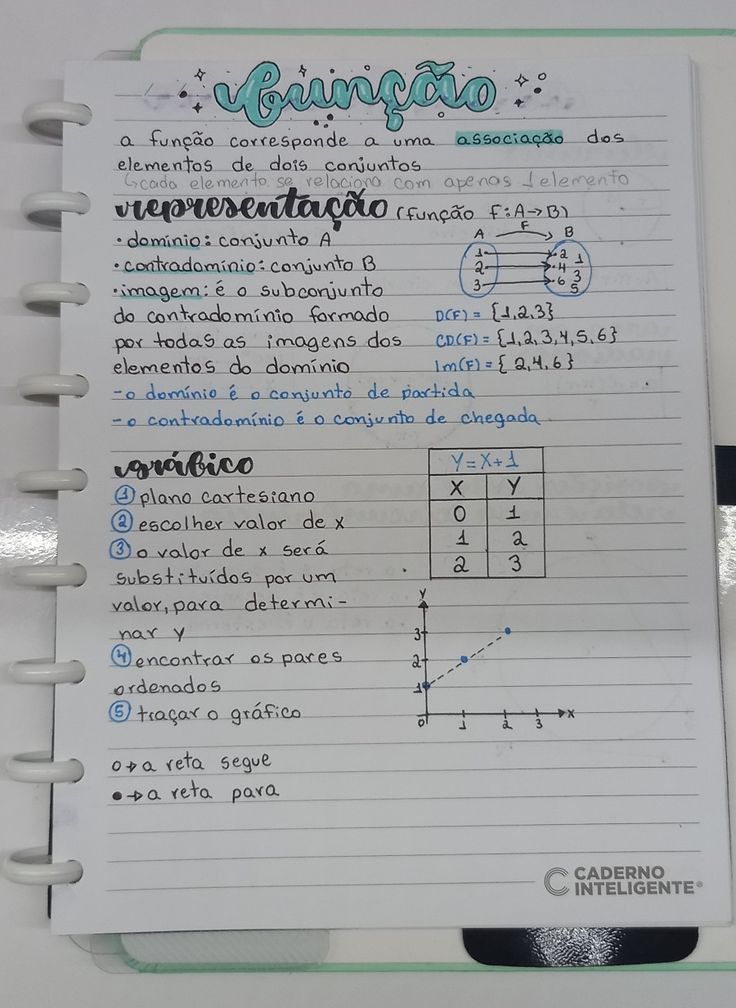 função
a função corresponde a uma associação dos
elementos de dois conjuntos
↳cada elemento se relaciona com apenas 1 elemento
representação (função F:A→B)
• domínio: conjunto A
• contradomínio: conjunto B
• imagem: é o subconjunto
do contradomínio formado
por todas as imagens dos
elementos do domínio
F
A B
1 2 1
2 4 3
3 6 5
D(F) = {1,2,3}
CD(F) = {1,2,3,4,5,6}
Im(F) = { 2,4,6 }
- o domínio é o conjunto de partida
- o contradomínio é o conjunto de chegada
gráfico
① plano cartesiano
② escolher valor de x
③ o valor de x será
substituídos por um
valor, para determi-
nar y
④ encontrar os pares
ordenados
⑤ traçar o gráfico
Y=X+1
X Y
0 1
1 2
2 3
Y
3
2
1
0 1 2 3 X
o→ a reta segue
●→ a reta para
CADERNO
INTELIGENTE®